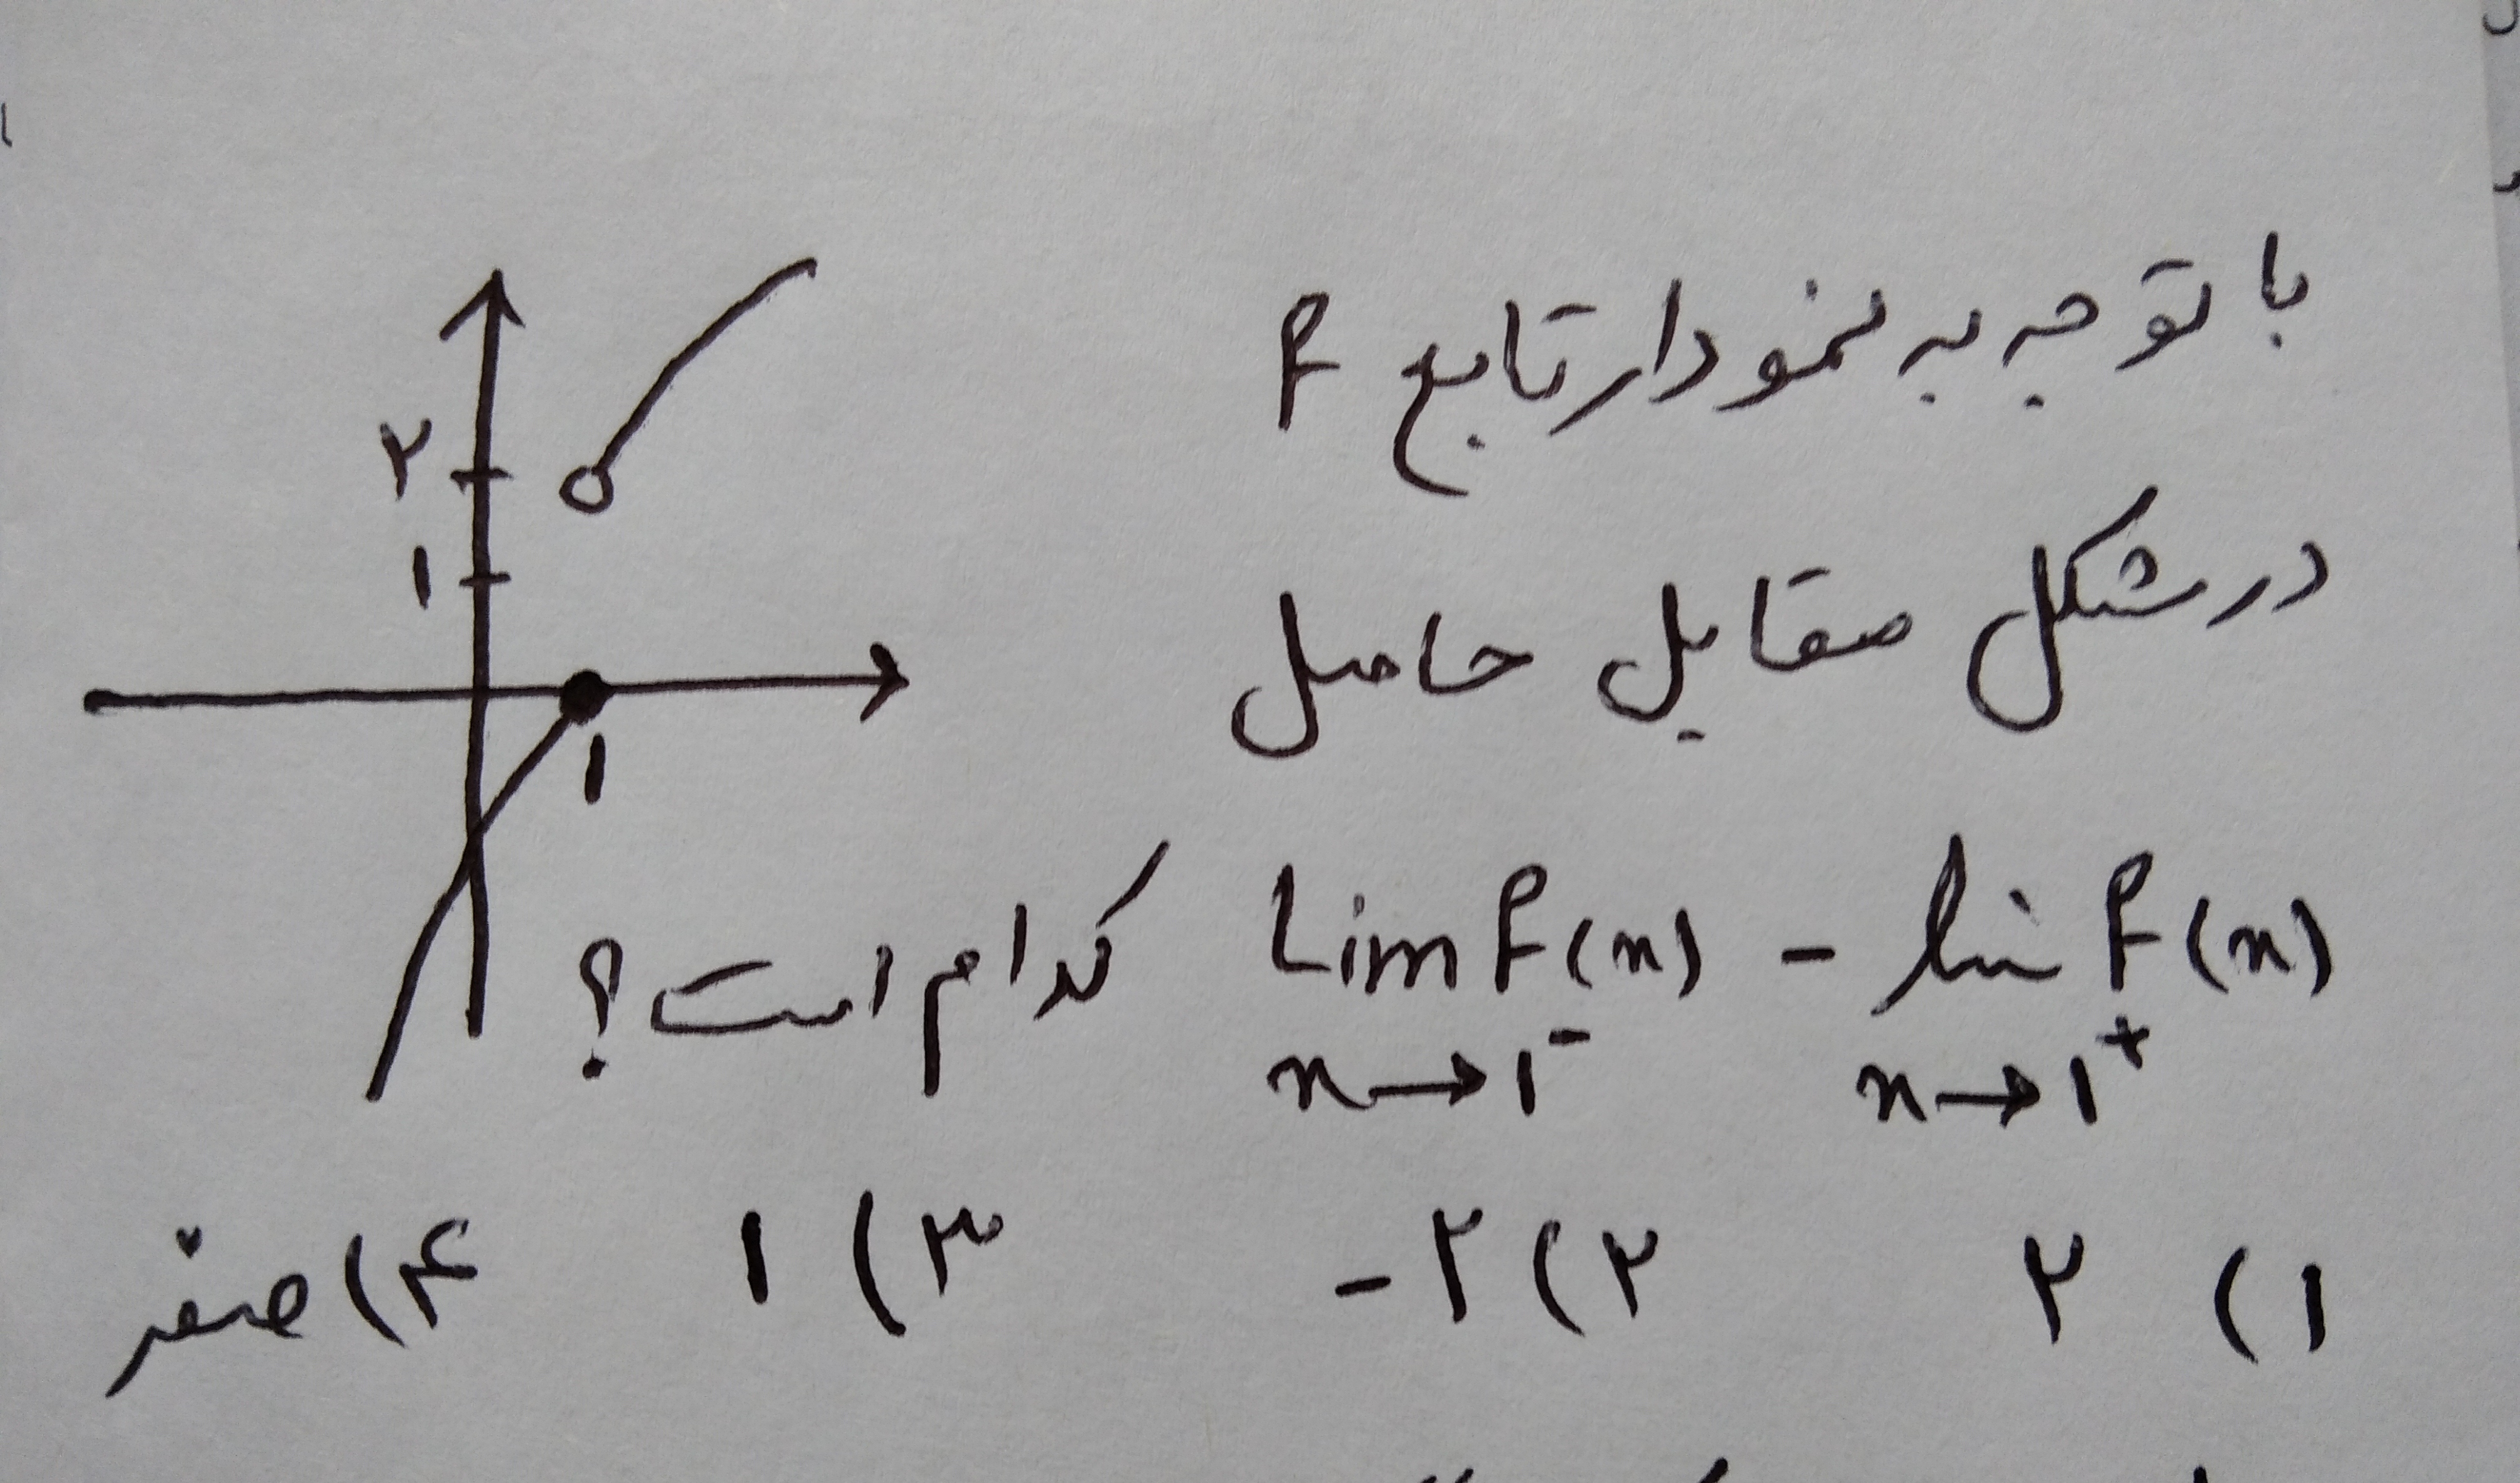 با توجه به نمودار تابع f
در شکل مقابل حاصل
Lim f(x) - lim f(x) کدام است؟
x→1⁻ x→1⁺
۱) ۲ ۲) ۲- ۳) ۱ ۴) صفر
۲
۱
۱